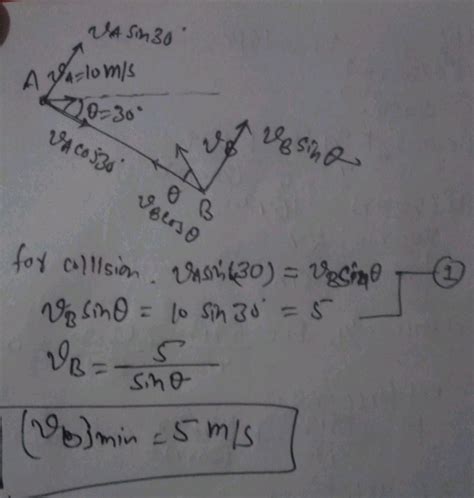 vA sin30°
A vA=10m/s
θ=30°
vA cos30°
vB vB sinθ
θ
vB cosθ
B
for collision. vA sin(30) = vB sinθ — ①
vB sinθ = 10 sin30° = 5
vB = 5/sinθ
(vB)min = 5 m/s